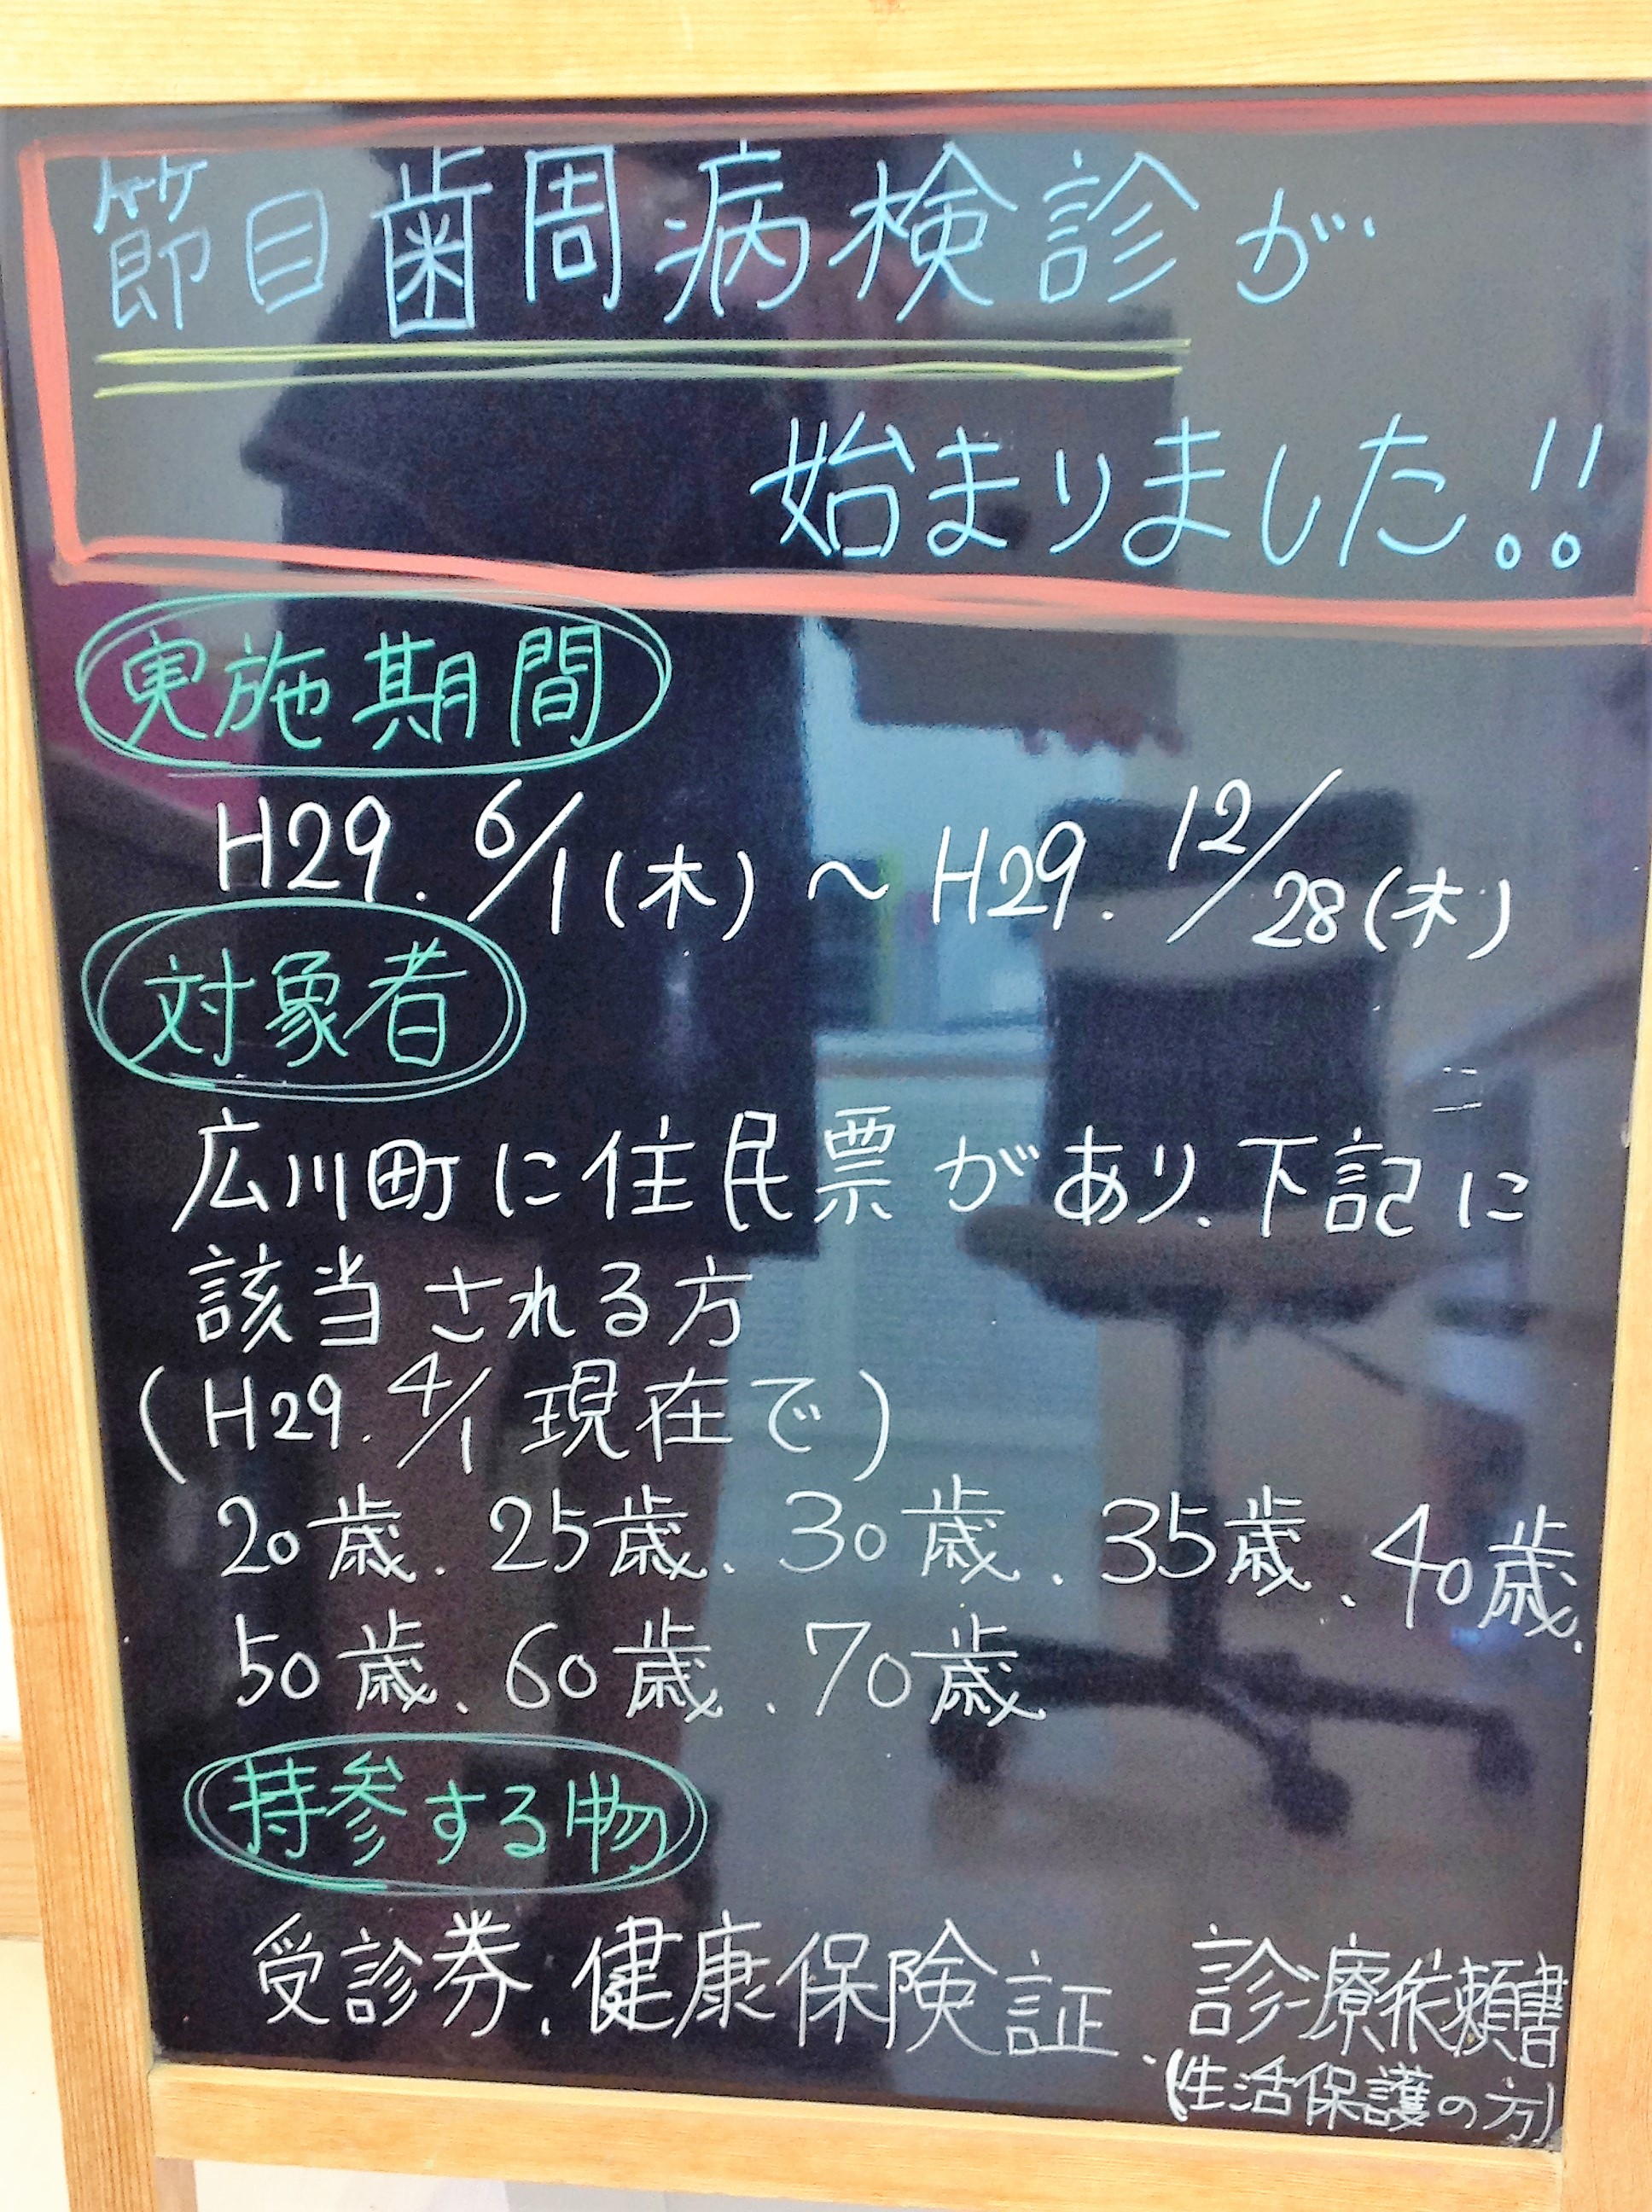 節目歯周病検診が
始まりました!!
実施期間
H29. 6/1(木)〜H29. 12/28(木)
対象者
広川町に住民票があり、下記に
該当される方
(H29. 4/1 現在で)
20歳、25歳、30歳、35歳、40歳、
50歳、60歳、70歳
持参する物
受診券、健康保険証、診療依頼書
(生活保護の方)